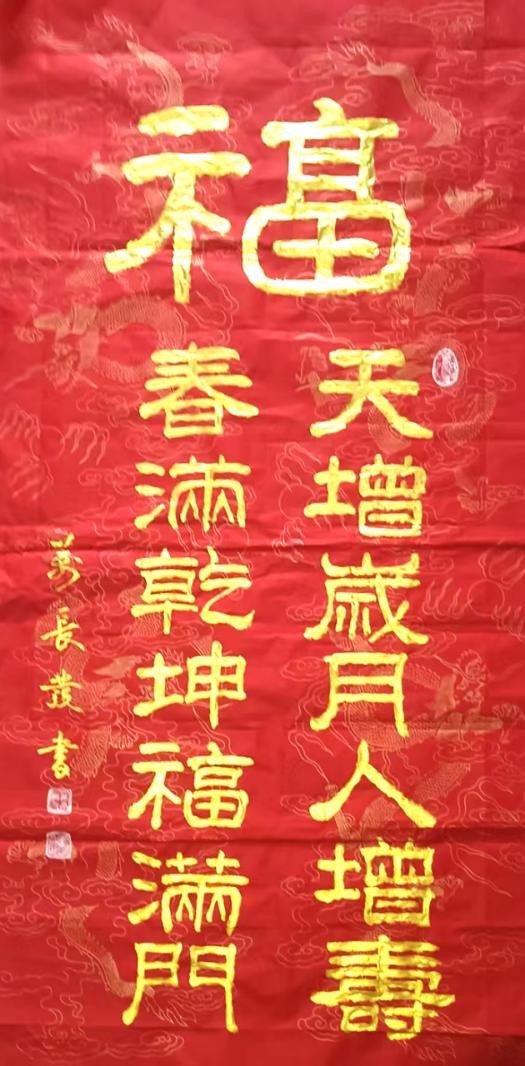 福
天增歲月人增壽
春滿乾坤福滿門
萬長發書